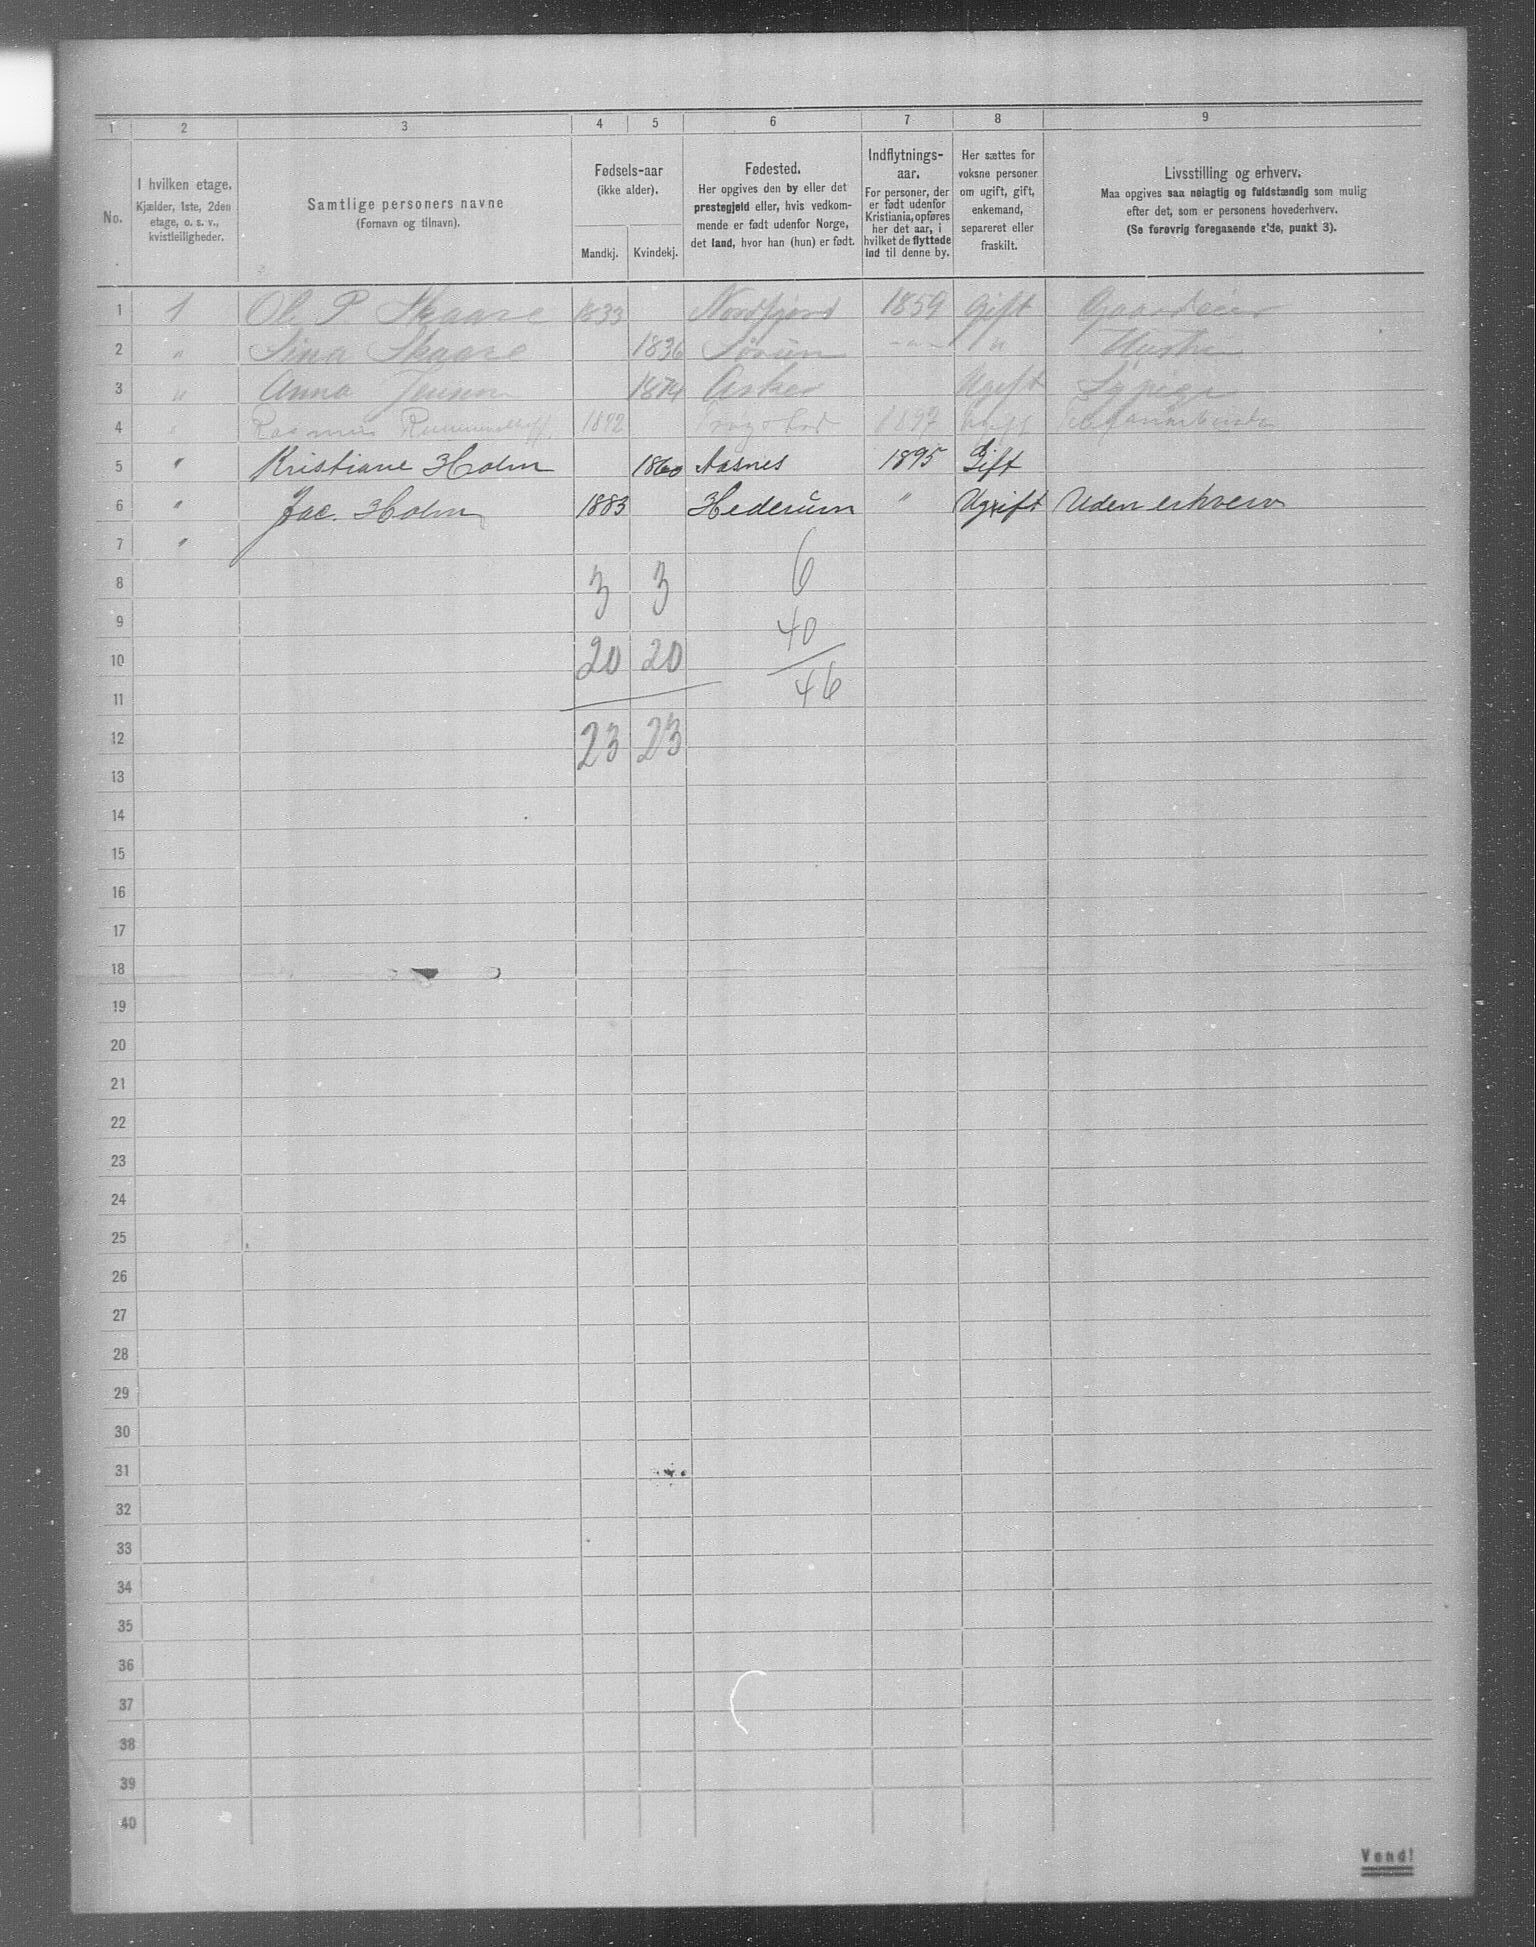 1 2 3 4 5 6 7 8 9
No.
I hvilken etage.
Kjælder, 1ste, 2den
etage, o. s. v.,
kvistleiligheder.
Samtlige personers navne
(Fornavn og tilnavn).
Fødsels-aar
(ikke alder).
Mandkj. Kvindekj.
Fødested.
Her opgives den by eller det
prestegjeld eller, hvis vedkom-
mende er født udenfor Norge,
det land, hvor han (hun) er født.
Indflytnings-
aar.
For personer, der
er født udenfor
Kristiania, opføres
her det aar, i
hvilket de flyttede
ind til denne by.
Her sættes for
voksne personer
om ugift, gift,
enkemand,
separeret eller
fraskilt.
Livsstilling og erhverv.
Maa opgives saa nøiagtig og fuldstændig som mulig
efter det, som er personens hovederhverv.
(Se forøvrig foregaaende side, punkt 3).
1 1 Ole P Skaare 1833 Nordfjord 1859 Gift Gaardeier
2 " Lina Skaare 1836 Sørum -"- " Hustru
3 " Anna Jensen 1874 Asker Ugift Sypige
4 " Rasmus 1897 Ugift
5 " Kristiane Holm 1860 Aasnes 1895 Gift
6 " Jac. Holm 1883 Hederum " Ugift Uden erhverv
7 "
8 3 3 6
9 40
10 20 20
11 46
12 23 23
13
14
15
16
17
18
19
20
21
22
23
24
25
26
27
28
29
30
31
32
33
34
35
36
37
38
39
40
Vend!